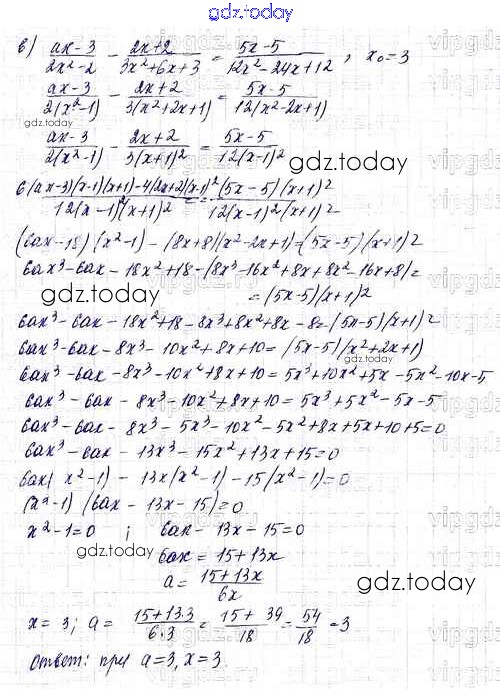 gdz.today
в) (ax-3)/(2x²-2) - (2x+2)/(3x²+6x+3) = (5x-5)/(12x²-24x+12) , x₀=3
(ax-3)/(2(x²-1)) - (2x+2)/(3(x²+2x+1)) = (5x-5)/(12(x²-2x+1))
gdz.today
(ax-3)/(2(x²-1)) - (2x+2)/(3(x+1)²) = (5x-5)/(12(x-1)²)
gdz.today
(6(ax-3)(x-1)(x+1)-4(2x+2)(x-1)²)/(12(x-1)²(x+1)²) = ((5x-5)(x+1)²)/(12(x-1)²(x+1)²)
(6ax-18)(x²-1)-(8x+8)(x²-2x+1)=(5x-5)(x+1)²
6ax³-6ax-18x²+18-(8x³-16x²+8x+8x²-16x+8)=
gdz.today
=(5x-5)(x+1)²
6ax³-6ax-18x²+18-8x³+8x²+8x-8=(5x-5)(x+1)²
6ax³-6ax-8x³-10x²+8x+10=(5x-5)(x²+2x+1)
gdz.today
6ax³-6ax-8x³-10x²+8x+10=5x³+10x²+5x-5x²-10x-5
6ax³-6ax-8x³-10x²+8x+10=5x³+5x²-5x-5
6ax³-6ax-8x³-5x³-10x²-5x²+8x+5x+10+5=0
6ax³-6ax-13x³-15x²+13x+15=0
6ax(x²-1)-13x(x²-1)-15(x²-1)=0
(x²-1)(6ax-13x-15)=0
x²-1=0 ; 6ax-13x-15=0
gdz.today
6ax=15+13x
a=(15+13x)/(6x)
gdz.today
x=3; a=(15+13·3)/(6·3)=(15+39)/18=54/18=3
Ответ: при a=3, x=3.
gdz.today